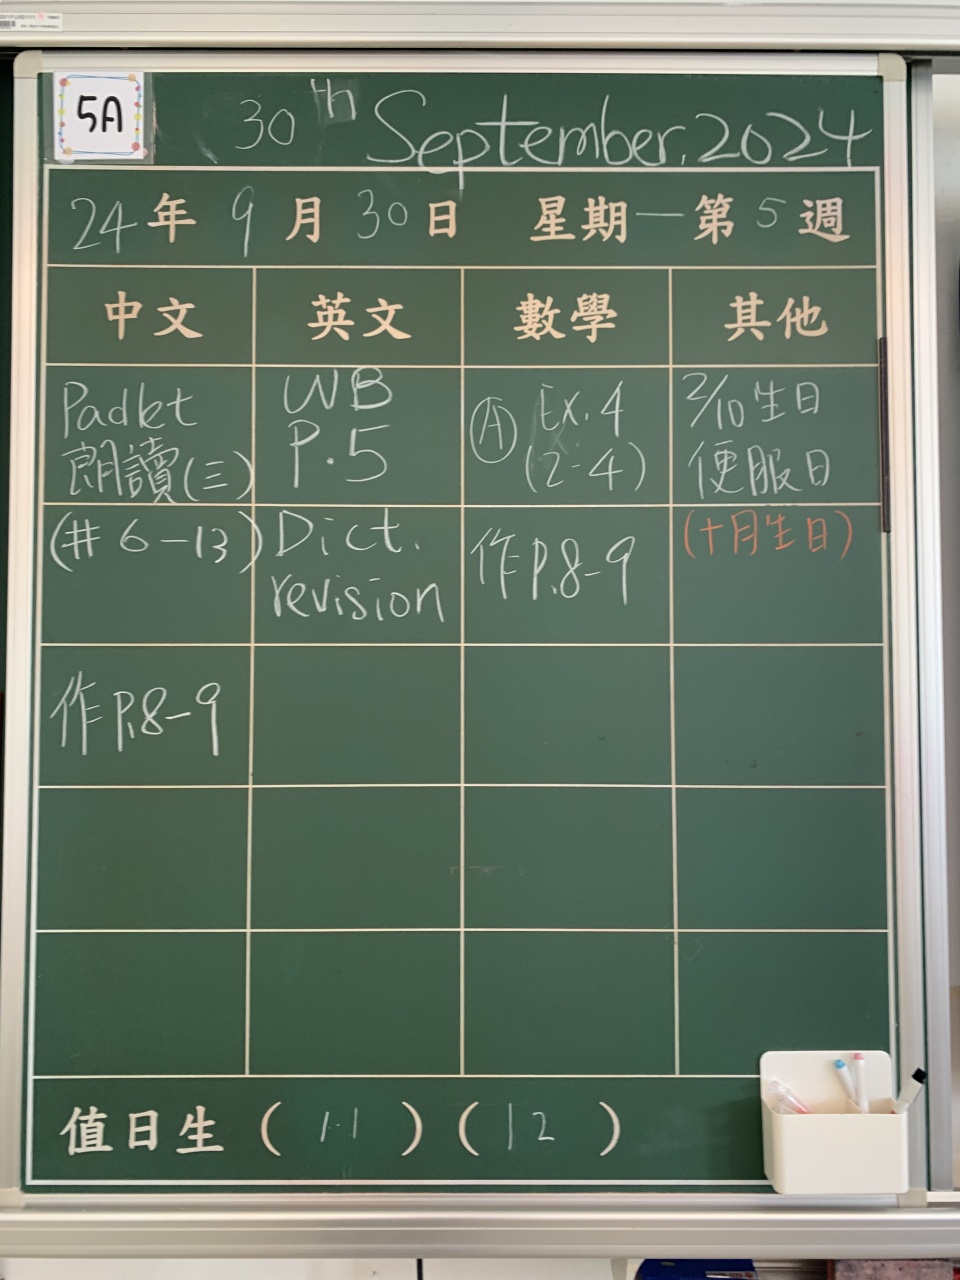 5A
30th September, 2024
24年 9月 30日 星期一 第5週
中文 英文 數學 其他
Padlet
朗讀(三)
(#6-13)
作P.8-9
WB
P.5
Dict.
revision
Ⓐ Ex.4
(2-4)
作P.8-9
2/10生日
便服日
(十月生日)
值日生 ( 11 ) ( 12 )